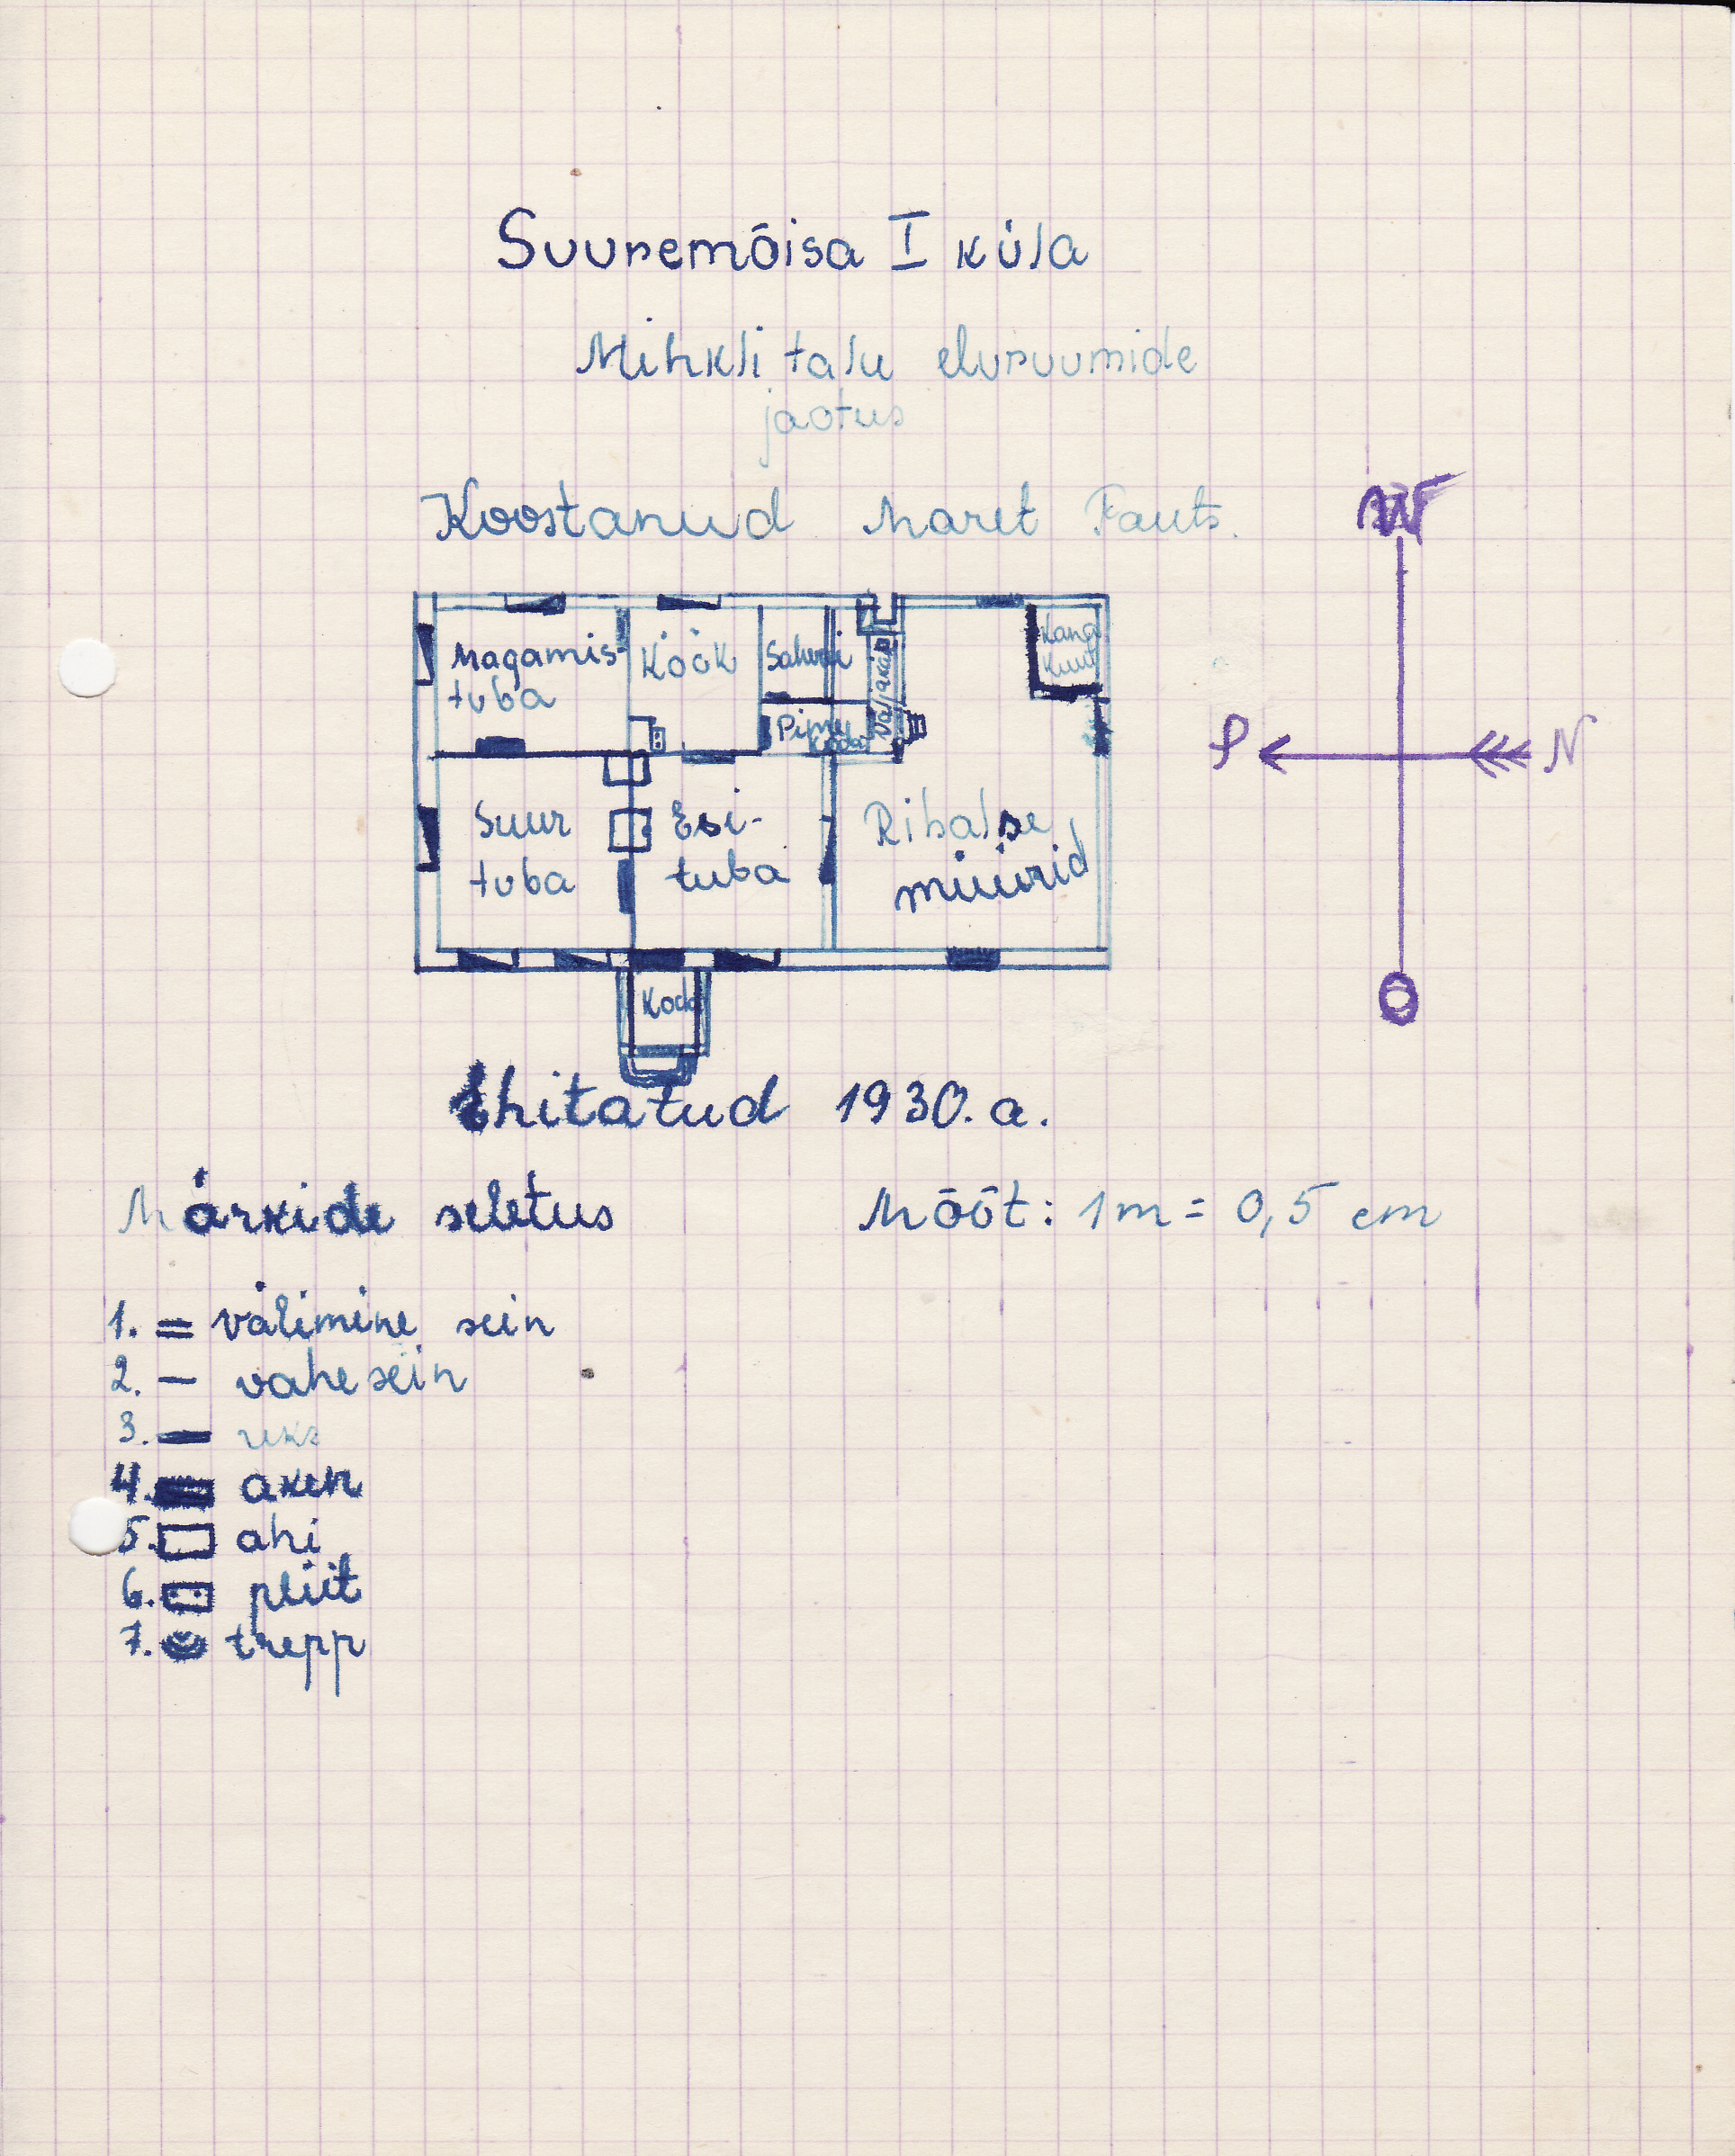 Suuremõisa I küla
Mihkli talu eluruumide
jaotus
Koostanud Maret Fauts.
W
Magamis-
tuba
Köök
Sahvri
Pime
Kana
kuut
P
N
Suur
tuba
Esi-
tuba
müürid
Koda
O
Ehitatud 1930. a.
Märkide seletus
Mõõt: 1 m = 0,5 cm
1. = välimine sein
2. — vahesein
3. uks
4. aken
5. ahi
6. pliit
7. trepp